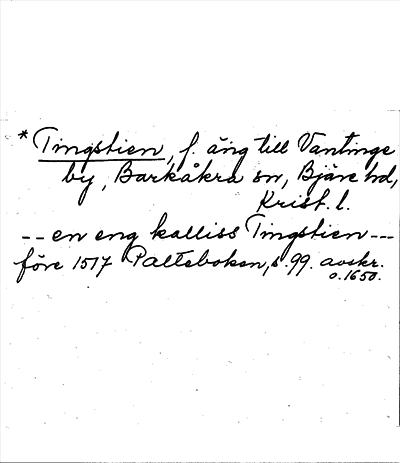 * Tingstien, f. äng till Vantinge
by, Barkåkra sn, Bjäre hd,
Krist. l.
-- en eng kalliss Tingstien ---
före 1517 Palteboken, s. 99. avskr.
o. 1650.